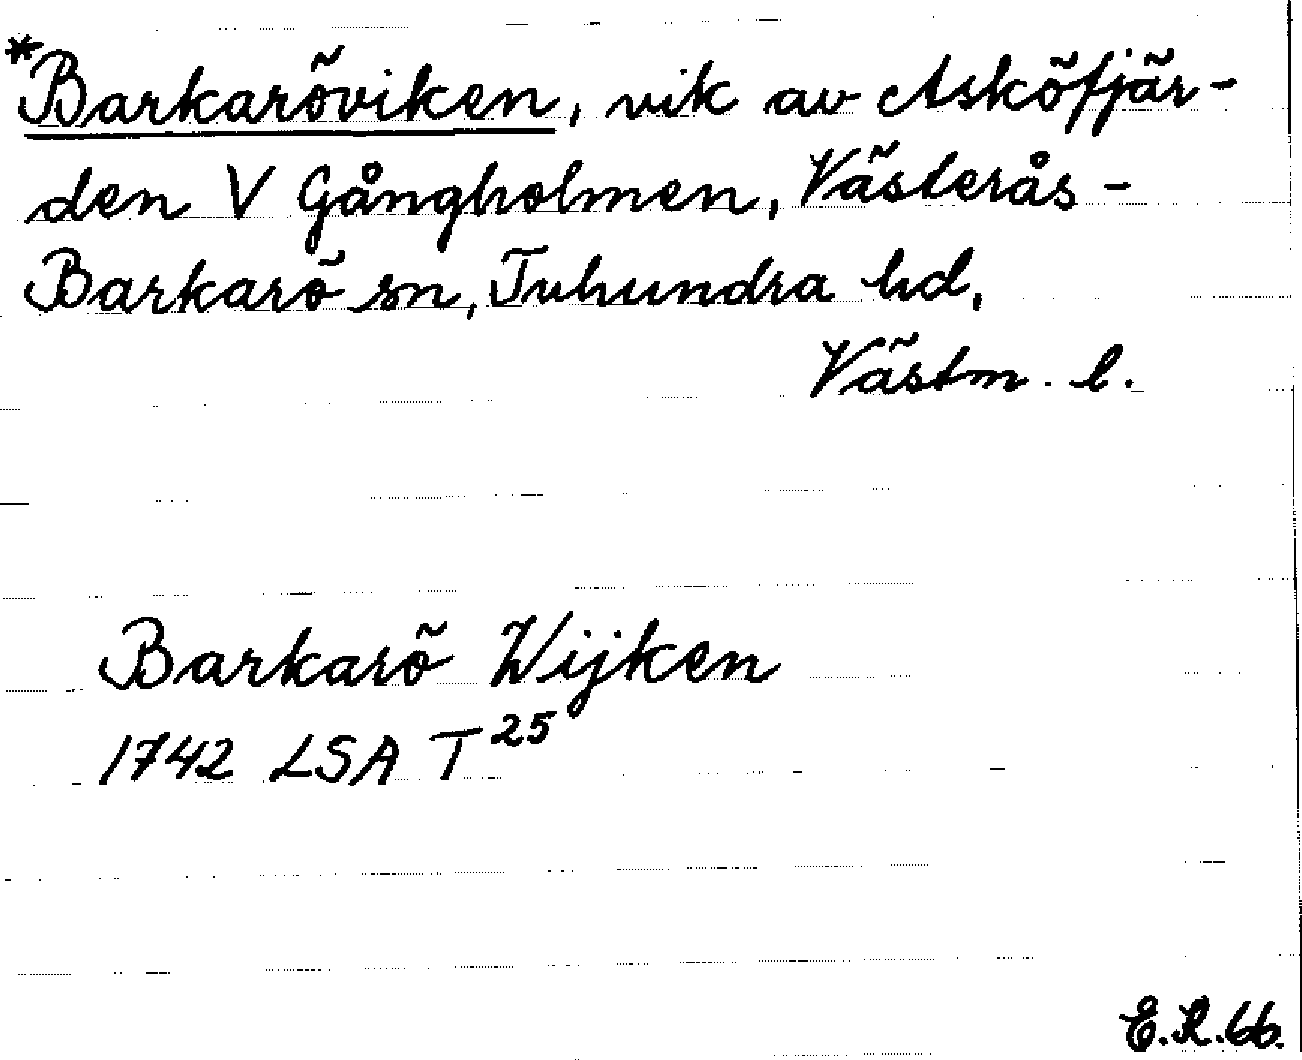 *Barkaröviken, vik av Asköfjär-
den V Gångholmen, Västerås-
Barkarö sn, Tuhundra hd,
Västm. l.
Barkarö Wijken
1742 LSA T 25
E.R.66.